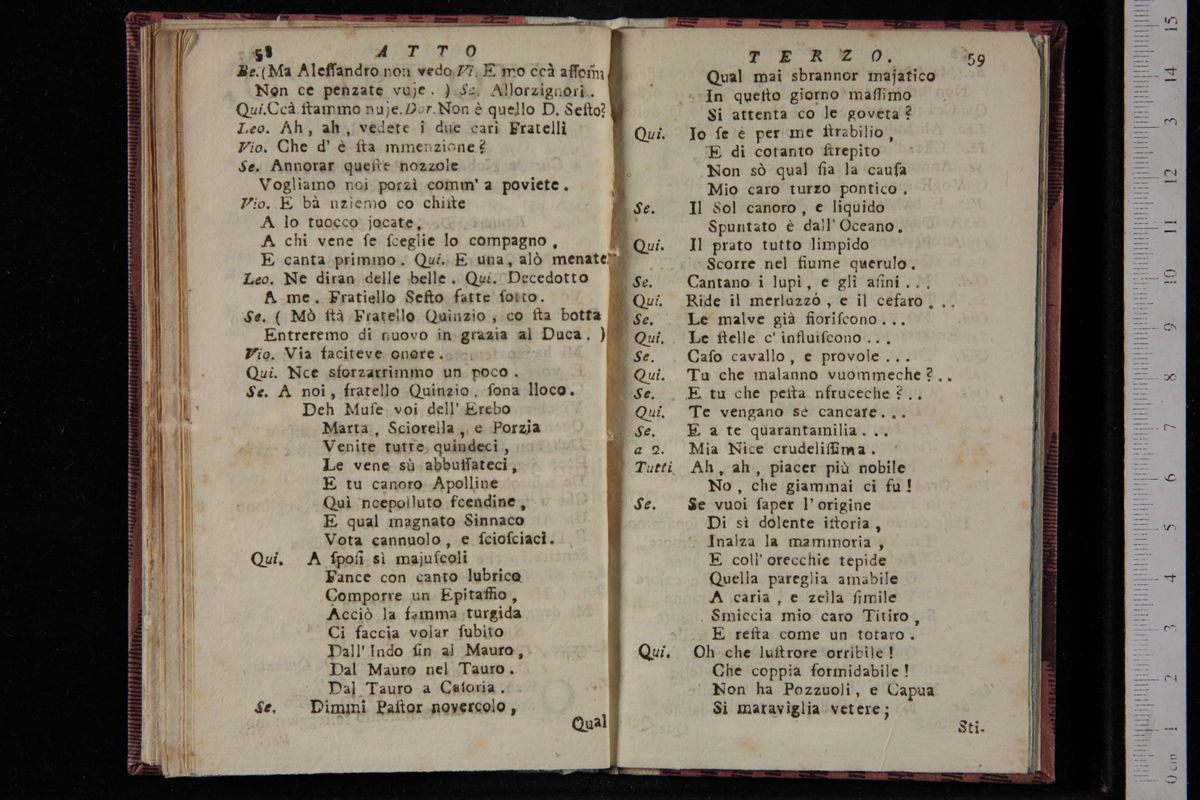 58 ATTO
Be. (Ma Aleſſandro non vedo Vi. E mo ccà
Non ce penzate vuje. ) Se. Allorzignori.
Qui. Ccà ſtammo nuje. Dor. Non è quello D. Seſto?
Leo. Ah, ah, vedete i due cari Fratelli
Vio. Che d' è ſta mmenzione?
Se. Annorar queſte nozzole
Vogliamo noi porzì comm' a poviete.
Vio. E bà nziemo co chiſte
A lo tuocco jocate,
A chi vene ſe ſceglie lo compagno,
E canta primmo. Qui. E una, alò menate.
Leo. Ne diran delle belle. Qui. Decedotto
A me. Fratiello Seſto fatte ſotto.
Se. ( Mò ſtà Fratello Quinzio, co ſta botta
Entreremo di nuovo in grazia al Duca. )
Vio. Via faciteve onore.
Qui. Nce sforzarrimmo un poco.
Se. A noi, fratello Quinzio, ſona lloco.
Deh Muſe voi dell' Erebo
Marta, Sciorella, e Porzia
Venite tutte quindeci,
Le vene sù abbuffateci,
E tu canoro Apolline
Quì ncepolluto ſcendine,
E qual magnato Sinnaco
Vota cannuolo, e ſcioſciaci.
Qui. A ſpoſi sì majuſcoli
Fance con canto lubrico
Comporre un Epitaffio,
Acciò la famma turgida
Ci faccia volar ſubito
Dall' Indo ſin al Mauro,
Dal Mauro nel Tauro.
Dal Tauro a Caſoria.
Se. Dimmi Paſtor novercolo,
Qual
TERZO. 59
Qual mai sbrannor majatico
In queſto giorno maſſimo
Si attenta co le goveta?
Qui. Io ſe è per me ſtrabilio,
E di cotanto ſtrepito
Non sò qual ſia la cauſa
Mio caro turzo pontico.
Se. Il Sol canoro, e liquido
Spuntato è dall' Oceano.
Qui. Il prato tutto limpido
Scorre nel fiume querulo.
Se. Cantano i lupi, e gli aſini...
Qui. Ride il merluzzo, e il cefaro...
Se. Le malve già fioriſcono...
Qui. Le ſtelle c' influiſcono...
Se. Caſo cavallo, e provole...
Qui. Tu che malanno vuommeche?..
Se. E tu che peſta nfruceche?..
Qui. Te vengano se cancare...
Se. E a te quarantamilia...
a 2. Mia Nice crudeliſſima.
Tutti Ah, ah, piacer più nobile
No, che giammai ci fu!
Se. Se vuoi ſaper l' origine
Di sì dolente iſtoria,
Inalza la mammoria,
E coll' orecchie tepide
Quella pareglia amabile
A caria, e zella ſimile
Smiccia mio caro Titiro,
E reſta come un totaro.
Qui. Oh che luſtrore orribile!
Che coppia formidabile!
Non ha Pozzuoli, e Capua
Si maraviglia vetere;
Sti-
15
14
13
12
11
10
9
8
7
6
5
4
3
2
1
0 cm